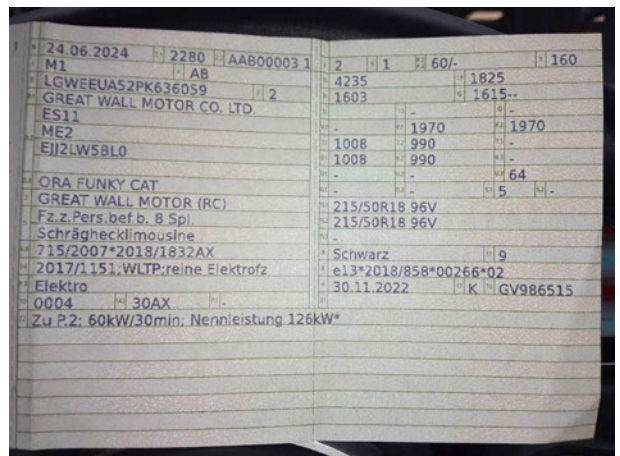 24.06.2024 2280 AAB00003 1
M1 AB
LGWEEUA52PK636059 2
GREAT WALL MOTOR CO. LTD.
ES11
ME2
EJJ2LW5BL0
ORA FUNKY CAT
GREAT WALL MOTOR (RC)
Fz.z.Pers.bef.b. 8 Spl.
Schräghecklimousine
715/2007*2018/1832AX
2017/1151;WLTP;reine Elektrofz
Elektro
0004 30AX -
Zu P.2: 60kW/30min; Nennleistung 126kW*
2 1 60/- 160
4235 1825
1603 1615--
- - -
- 1970 1970
1008 990 -
1008 990 -
- - 64
- - 5 -
215/50R18 96V
215/50R18 96V
-
Schwarz 9
e13*2018/858*00266*02
30.11.2022 K GV986515